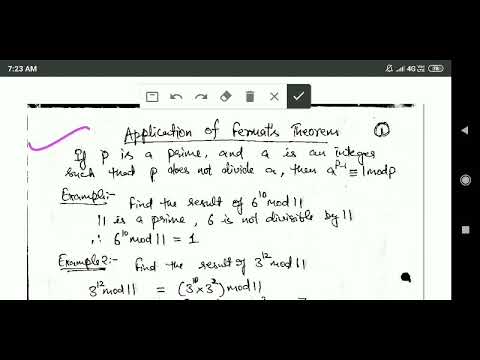 7:23 AM
4G
Application of Fermat's Theorem
1
If P is a prime, and a is an integer
such that p does not divide a, then a^{P-1} ≡ 1 mod P
Example:- Find the result of 6^{10} mod 11
11 is a prime, 6 is not divisible by 11
∴ 6^{10} mod 11 = 1
Example 2:- Find the result of 3^{12} mod 11
3^{12} mod 11 = (3^{10} × 3^{2}) mod 11